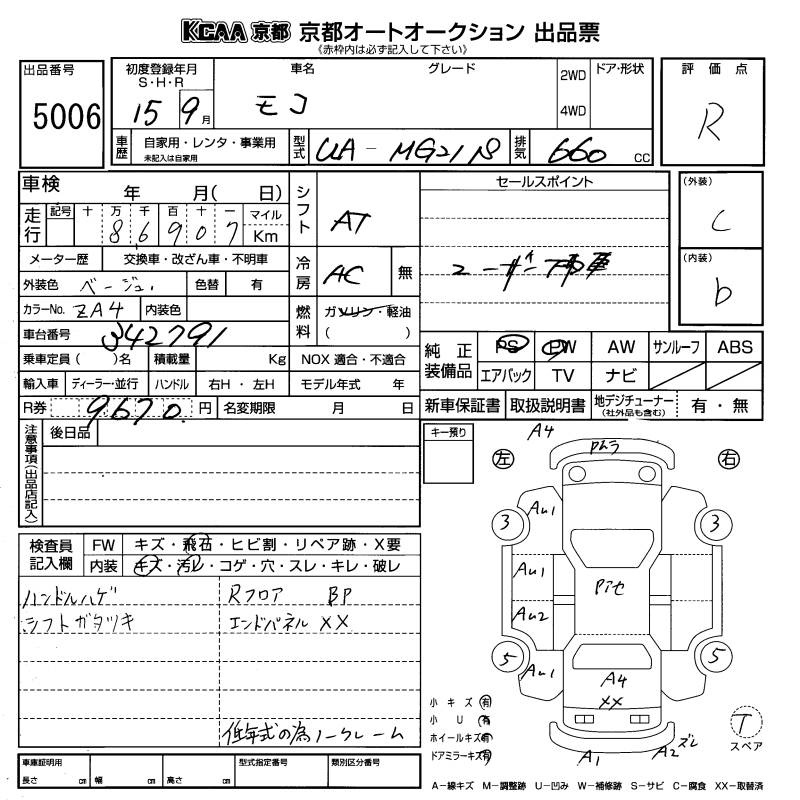 KCAA 京都 京都オートオークション 出品票
《赤枠内は必ず記入して下さい》
出品番号
5006
初度登録年月
S・H・R
15 9月
車名
モコ
グレード
2WD
4WD
ドア・形状
評価点
R
車歴
自家用・レンタ・事業用
未記入は自家用
型式
UA-MG21S
排気
660 cc
車検 年 月( 日)
走行
記号 十 万 千 百 十 一 マイル
8 6 9 0 7 Km
メーター歴 交換車・改ざん車・不明車
外装色 ベージュ. 色替 有
カラーNo. ZA4 内装色
車台番号 342791
乗車定員( )名 積載量 Kg
輸入車 ディーラー・並行 ハンドル 右H・左H
R券 9670 円 名変期限 月 日
シフト AT
冷房 AC 無
燃料 ガソリン・軽油
( )
NOX 適合・不適合
モデル年式 年
セールスポイント
ユーザー下取車
(外装)
C
(内装)
b
純正装備品
PS PW AW サンルーフ ABS
エアバック TV ナビ
新車保証書 取扱説明書 地デジチューナー
(社外品も含む)
有・無
注意事項(出品店記入)
後日品
検査員記入欄
FW キズ・飛石・ヒビ割・リペア跡・X要
内装 キズ・汚レ・コゲ・穴・スレ・キレ・破レ
ハンドルハゲ Rフロア BP
シフトガタツキ エンドパネル XX
低年式の為ノークレーム
車庫証明用
長さ cm 幅 cm 高さ cm
型式指定番号
類別区分番号
キー預り
A4
左
右
3
3
Au1
Au1
Au2
Au1
5
5
A4
XX
A1
A2 ズレ
小キズ 有
小U 有
ホイールキズ 有
ドアミラーキズ 有
T
スペア
A―線キズ M―調整跡 U―凹み W―補修跡 S―サビ C―腐食 XX―取替済